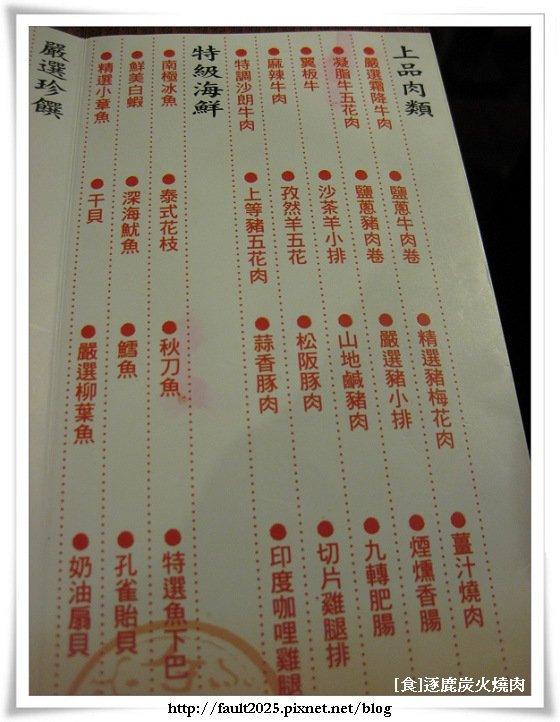 上品肉類
嚴選霜降牛肉
鹽蔥牛肉卷
精選豬梅花肉
薑汁燒肉
凝脂牛五花肉
鹽蔥豬肉卷
嚴選豬小排
煙燻香腸
翼板牛
沙茶羊小排
山地鹹豬肉
九轉肥腸
麻辣牛肉
孜然羊五花
松阪豚肉
切片雞腿排
特調沙朗牛肉
上等豬五花肉
蒜香豚肉
印度咖哩雞腿
特級海鮮
南極冰魚
泰式花枝
秋刀魚
特選魚下巴
鮮美白蝦
深海魷魚
鱈魚
孔雀貽貝
精選小章魚
干貝
嚴選柳葉魚
奶油扇貝
嚴選珍饌
[食]逐鹿炭火燒肉
http://fault2025.pixnet.net/blog